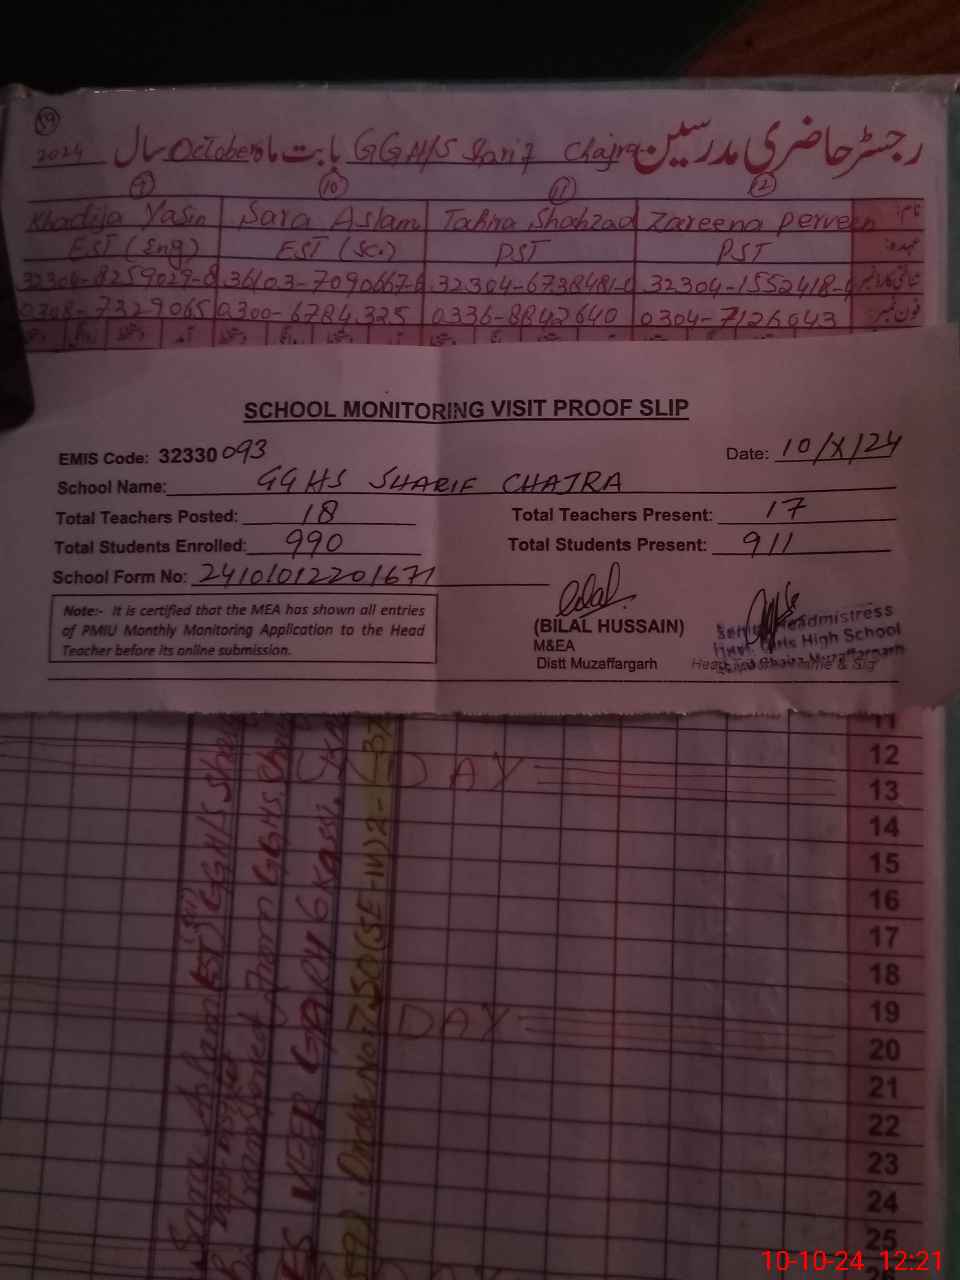 59
رجسٹر حاضری مدرسین GGH/S Sharif Chajra بابت ماہ October سال 2024
9 10 11 12
Khadija Yasin Sara Aslam Tahira Shahzad Zareena Perveen نام
EST (Eng) EST (Sci) PST PST عہدہ
32304-8259029-8 36103-7090667-6 32304-6738481- 32304-1552418-
0308-7329065 0300-6784325 0336-8842640 0304-7126643 فون نمبر
SCHOOL MONITORING VISIT PROOF SLIP
EMIS Code: 32330 093 Date: 10/X/24
School Name: GGHS SHARIF CHAJRA
Total Teachers Posted: 18 Total Teachers Present: 17
Total Students Enrolled: 990 Total Students Present: 911
School Form No: 24101012201671
Note:- It is certified that the MEA has shown all entries
of PMIU Monthly Monitoring Application to the Head
Teacher before its online submission.
(BILAL HUSSAIN)
M&EA
Distt Muzaffargarh
Headmistress
Girls High School
Muzaffargarh
11
12
DAY
13
14
15
16
17
18
19
DAY
20
21
22
23
24
25
Sara Aslam EST (Sci) GGH/S
transferred from GGHS
VEER GARH
Order No. 750(SE-IV)2-
10-10-24 12:21